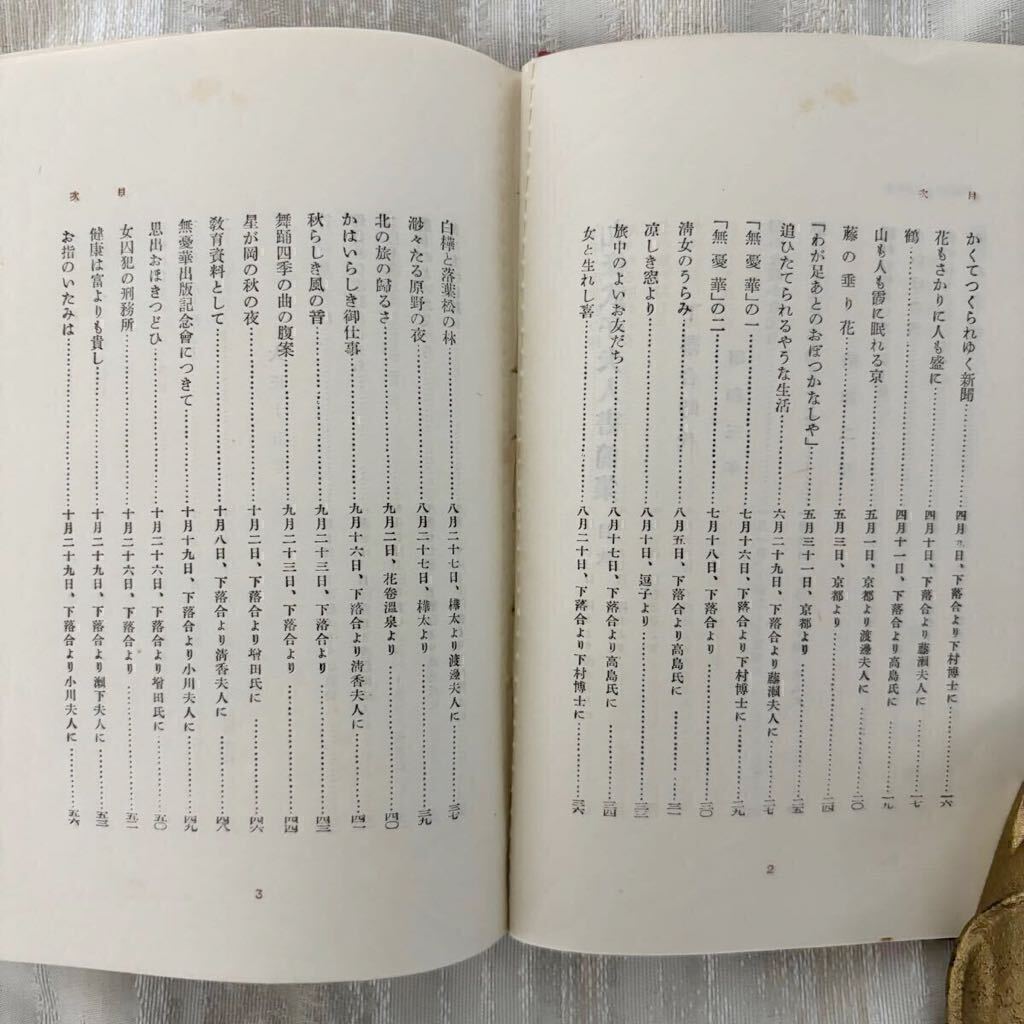 目次
かくてつくられゆく新聞……四月九日、下落合より下村博士に……一六
花もさかりに人も盛に……四月十日、下落合より藤瀬夫人に……一七
鶴……四月十一日、下落合より高島氏に……一九
山も人も霞に眠れる京……五月一日、京都より渡邊夫人に……二〇
藤の垂り花……五月三日、京都より……二四
「わが足あとのおぼつかなしや」……五月三十一日、京都より……二五
追ひたてられるやうな生活……六月二十九日、下落合より藤瀬夫人に……二七
「無憂華」の一……七月十六日、下落合より下村博士に……二九
「無憂華」の二……七月十八日、下落合より……三〇
淸女のうらみ……八月五日、下落合より高島氏に……三一
凉しき窓より……八月十日、逗子より……三三
旅中のよいお友だち……八月十七日、下落合より高島氏に……三四
女と生れし喜……八月二十日、下落合より下村博士に……三六
2
目次
白樺と落葉松の林……八月二十七日、樺太より渡邊夫人に……三七
渺々たる原野の夜……八月二十七日、樺太より……三九
北の旅の歸るさ……九月二日、花卷溫泉より……四〇
かはいらしき御仕事……九月十六日、下落合より淸香夫人に……四一
秋らしき風の音……九月二十三日、下落合より……四三
舞踊四季の曲の腹案……九月二十三日、下落合より……四四
星が岡の秋の夜……十月二日、下落合より增田氏に……四六
敎育資料として……十月八日、下落合より淸香夫人に……四八
無憂華出版記念會につきて……十月十九日、下落合より小川夫人に……四九
思出おほきつどひ……十月二十六日、下落合より增田氏に……五〇
女囚犯の刑務所……十月二十六日、下落合より……五二
健康は富よりも貴し……十月二十九日、下落合より瀨下夫人に……五三
お指のいたみは……十月二十九日、下落合より小川夫人に……五六
3